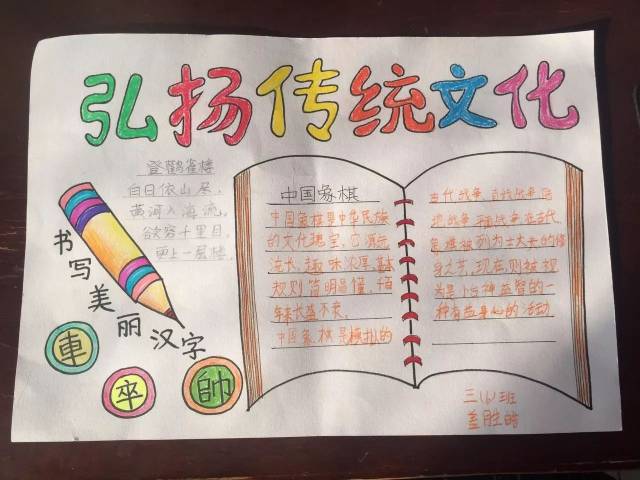 弘扬传统文化
登鹳雀楼
白日依山尽,
黄河入海流,
欲穷千里目,
更上一层楼.
书写美丽汉字
車
卒
帥
中国象棋
中国象棋是中华民族
的文化瑰宝,它源远
流长,趣味浓厚,基本
规则简明易懂,千百
年来长盛不衰.
中国象棋是模拟的
古代战争、直线战争、陆
地战争、平面战争在古代
象棋被列为士大夫的修
身之艺,现在,则被视
为是个怡神益智的一
种有益身心的活动
三(6)班